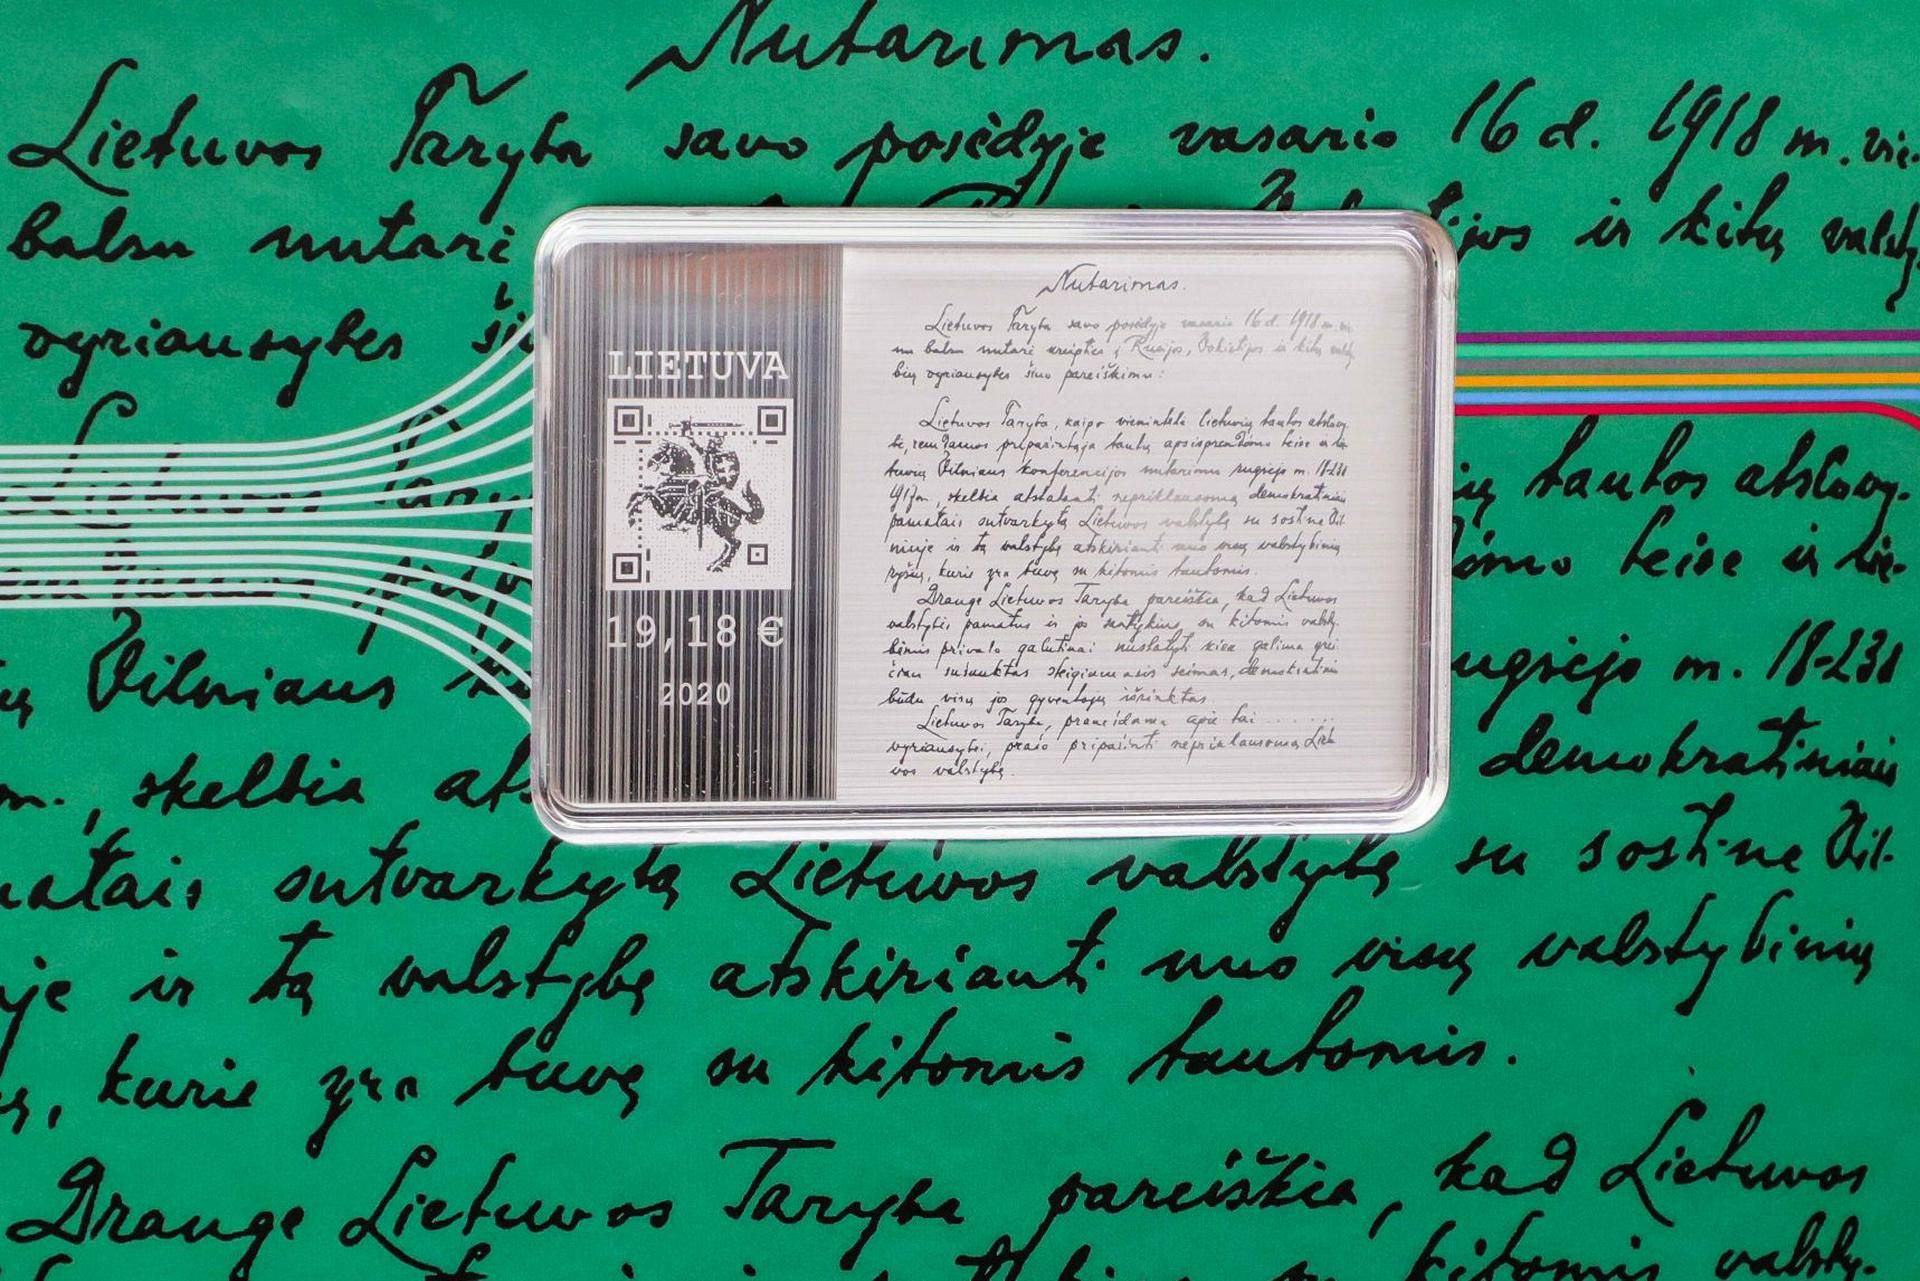 Nutarimas.
Lietuvos Taryba savo posėdyje vasario 16 d. 1918 m. vie-
balsu nutarė ijos ir kitų valsty
vyriausybes ši
LIETUVA
19,18 €
2020
Nutarimas.
Lietuvos Taryba savo posėdyje vasario 16 d. 1918 m. vie
nu balsu nutarė kreiptis į Rusijos, Vokietijos ir kitų valsty
bių vyriausybes šiuo pareiškimu:
Lietuvos Taryba, kaipo vienintelė lietuvių tautos atstovy-
bė, remdamos pripažintąja tautų apsisprendimo teise ir lie-
tuvių Vilniaus konferencijos nutarimu rugsėjo m. 18-23 d
1917 m., skelbia atstatanti nepriklausomą demokratiniais
pamatais sutvarkytą Lietuvos valstybę su sostine Vil-
niuje ir tą valstybę atskirianti nuo visų valstybinių
ryšių, kurie yra buvę su kitomis tautomis.
Drauge Lietuvos Taryba pareiškia, kad Lietuvos
valstybės pamatus ir jos santykius su kitomis valsty-
bėmis privalo galutinai nustatyti kiek galima grei-
čiau sušauktas steigiamasis seimas, demokratiniu
būdu visų jos gyventojų išrinktas.
Lietuvos Taryba, pranešdama apie tai .......
vyriausybei, prašo pripažinti nepriklausomą Lietu
vos valstybę.
ių tautos atstovy-
imo teise ir lie-
Vilniaus ugsėjo m. 18-23 d
m., skelbia ats demokratiniais
matais sutvarkytą Lietuvos valstybę su sostine Vil-
je ir tą valstybę atskirianti nuo visų valstybinių
ų, kurie yra buvę su kitomis tautomis.
Drauge Lietuvos Taryba pareiškia, kad Lietuvos
su kitomis valsty-